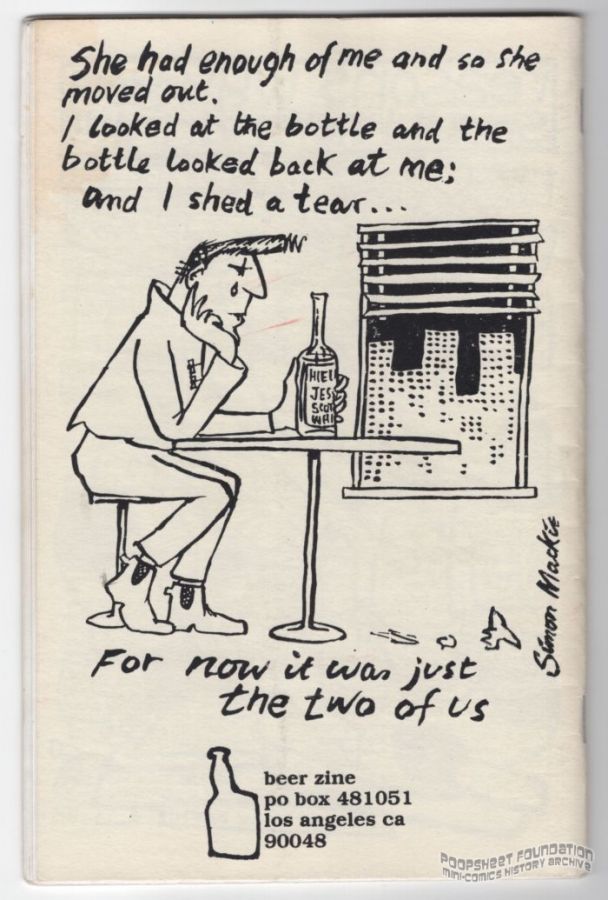 She had enough of me and so she
moved out.
I looked at the bottle and the
bottle looked back at me;
and I shed a tear...
JES
Simon Mackie
For now it was just
the two of us
beer zine
po box 481051
los angeles ca
90048
POOPSHEET FOUNDATION
MINI-COMICS HISTORY ARCHIVE